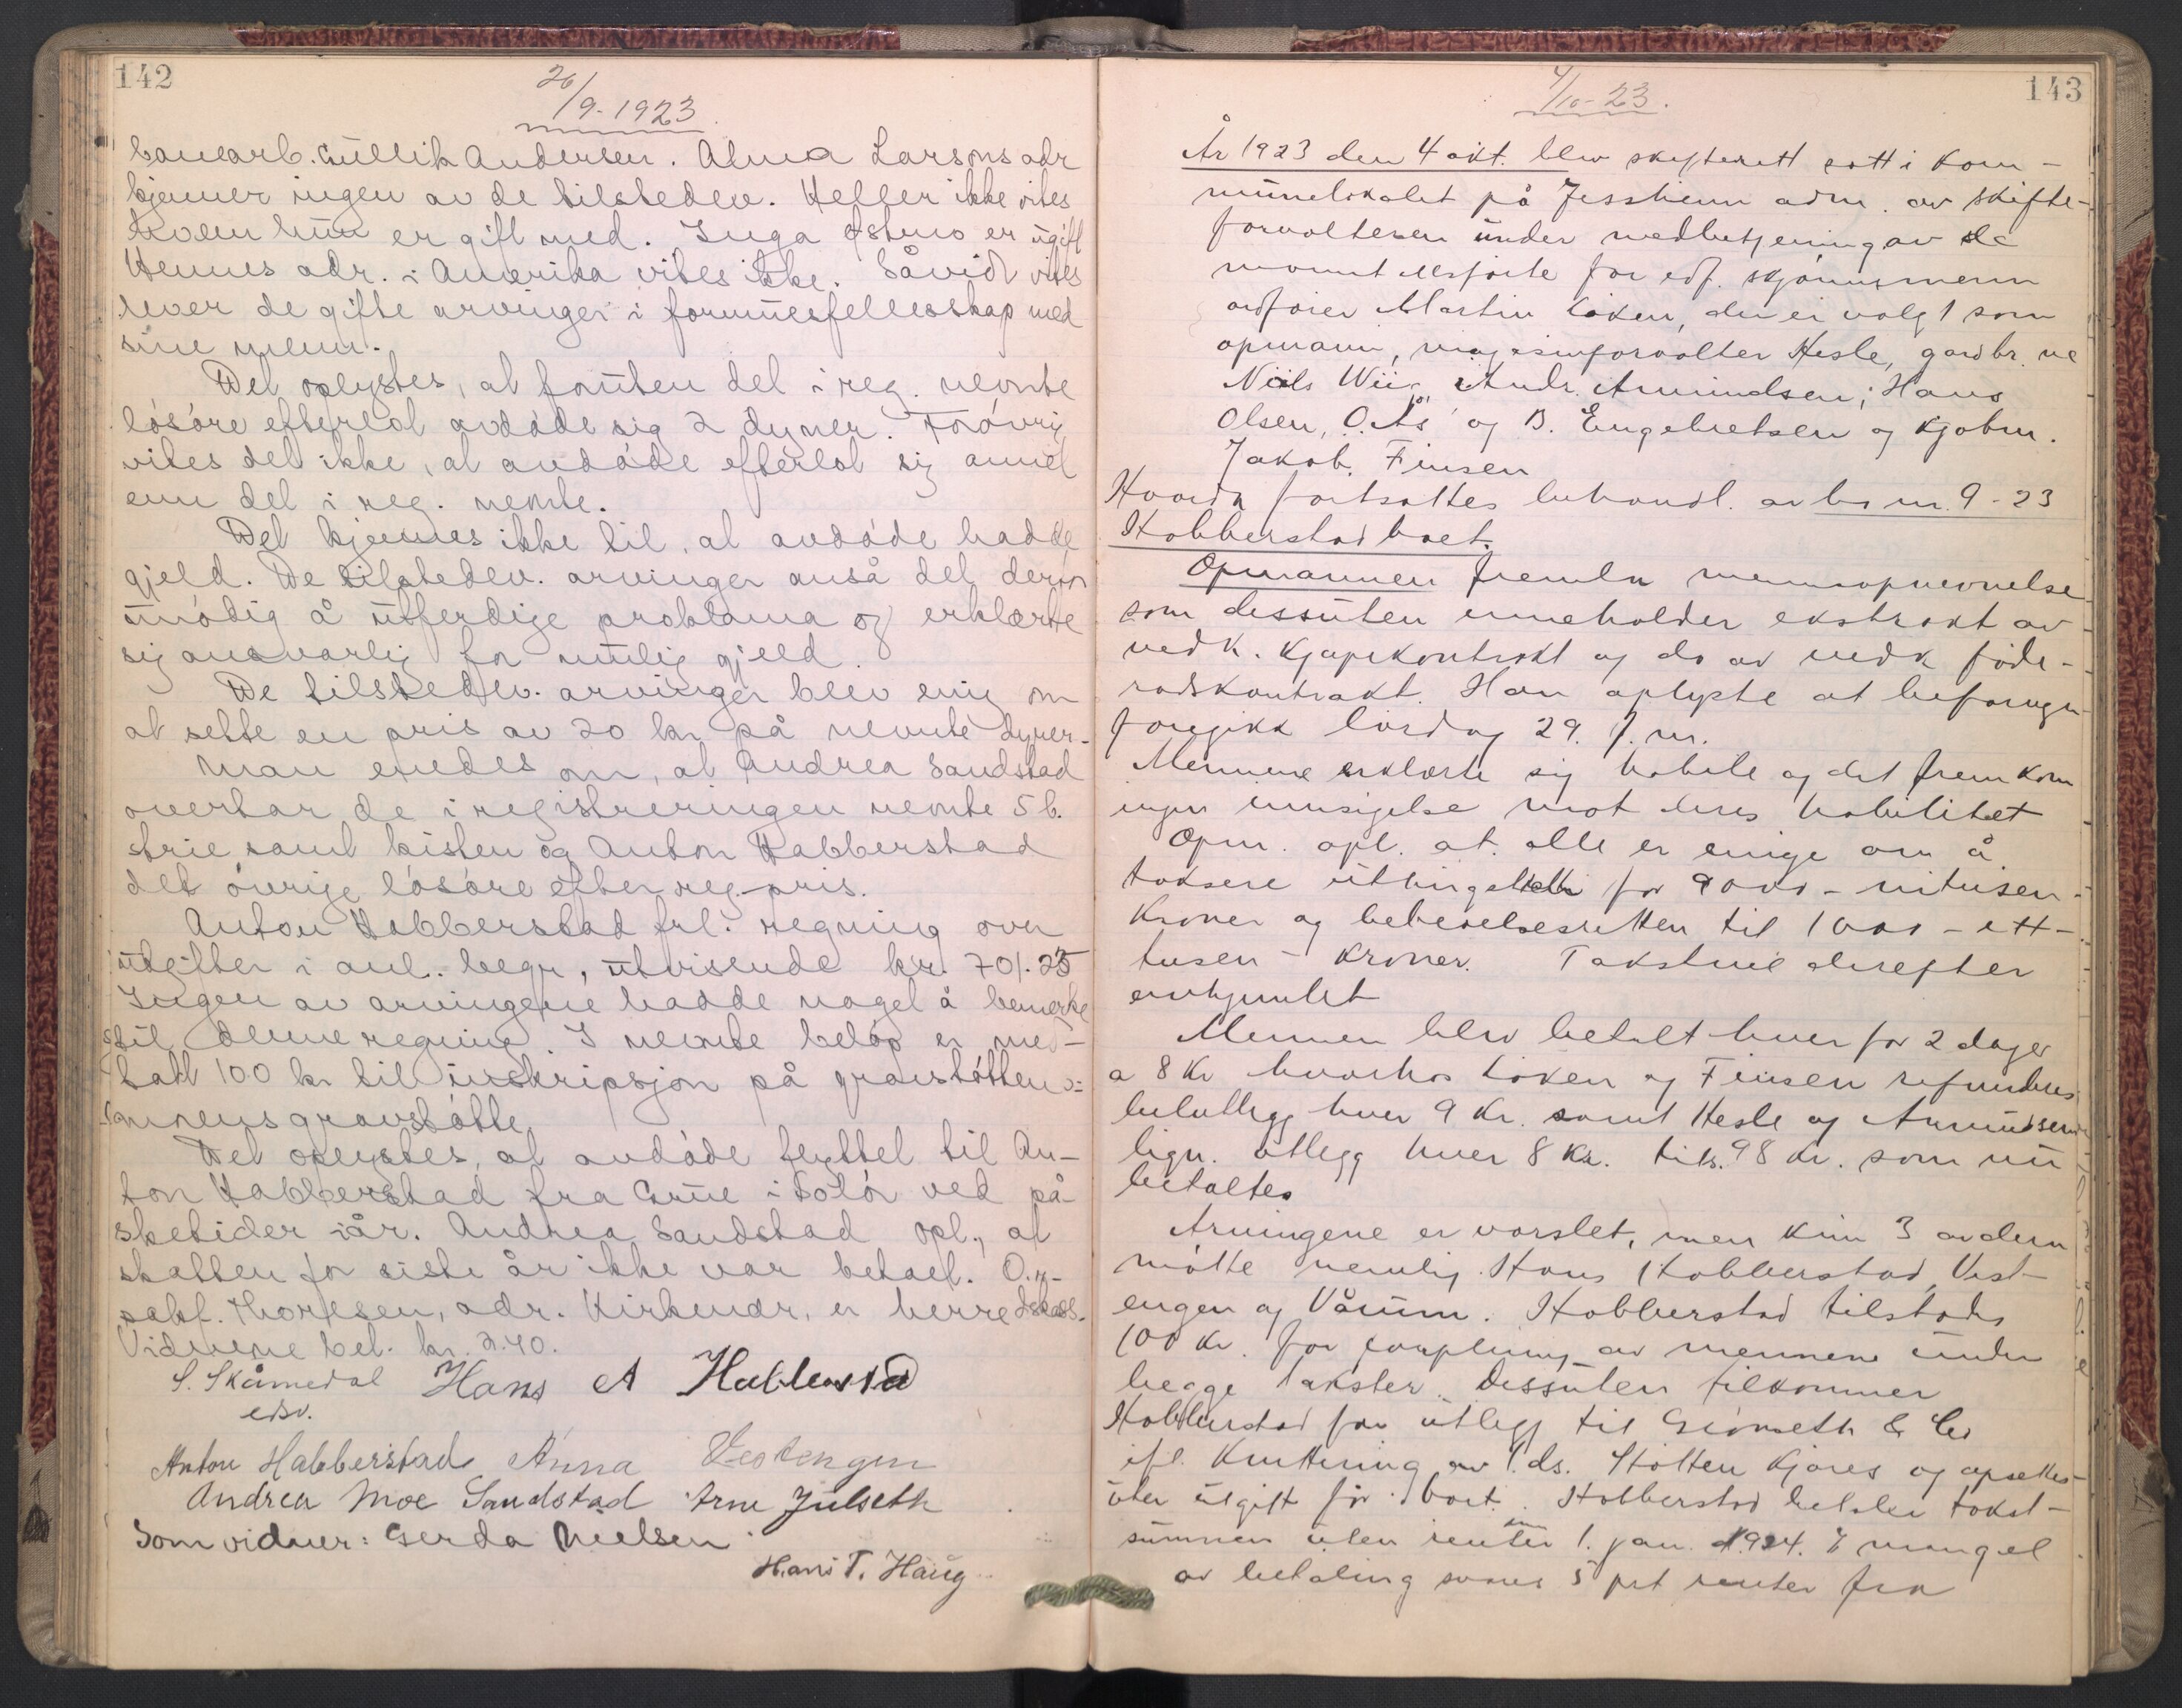 142
26/9-1923
banearb. Gullik Andersen. Alma Larsons adr
kjenner ingen av de tilstedev. Heller ikke vites
hvem hun er gift med. Inga Østmo er ugift
Hennes adr. i Amerika vites ikke. Såvidt vites
lever de gifte arvinger i formuesfellesskap med
sine menn.
Det oplystes, at foruten det i reg. nevnte
løsøre efterlot avdøde sig 2 dyner. Forøvrig
vites det ikke, at avdøde efterlot sig annet
enn det i reg. nevnte.
Det kjennes ikke til, at avdøde hadde
gjeld. De tilstedev. arvinger anså det derfor
unødig å utferdige proklama og erklærte
sig ansvarlig for mulig gjeld.
De tilstedev. arvinger blev enig om
at sette en pris av 20 kr på nevnte dyner.
Man enedes om, at Andrea Sandstad
overtar de i registreringen nevnte 5 b.
strie samt kisten og Anton Habberstad
det øvrige løsøre efter reg.-pris.
Anton Habberstad frl. regning over
utgifter i anl. begr, utvisende kr. 701.25
Ingen av arvingene hadde noget å bemerke
til denne regning. I nevnte beløp er med-
tatt 100 kr til inskripsjon på gravstøtten o:
mannens gravstøtte.
Det oplystes, at avdøde flyttet til An-
ton Habberstad fra Grue i Solør ved på-
sketider iår. Andrea Sandstad opl., at
skatten for siste år ikke var betalt. O.r.-
sakf. Thoresen, adr. Kirkenær, er herredskass.
Vidnene bet. kr. 2.40.
S. Skåmedal Hans A Habberstad
edsv.
Anton Habberstad Anna Vestengen
Andrea Moe Sandstad Arne Julseth
Som vidner: Gerda Nielsen
Hans T. Haug
143
4/10-23.
År 1923 den 4 okt. blev skifterett satt i kom-
munelokalet på Jessheim adm. av skifte-
forvalteren under medbetjening av de
mannt. opførte for edf. skjønnsmenn
ordfører Martin Løken, der er valgt som
opmann, magasinforvalter Hesle, gardbr.ne
Nils Wiig, Andr. Amundsen, Hans
Olsen, O. Ås og B. Engebretsen og kjøbm.
Jakob Finsen
Hvorda fortsattes behandl. av bo nr. 9-23
Habberstad boet.
Opmannen fremla mennsopnevnelse
som dessuten inneholder ekstrakt av
vedk. kjøpekontrakt og do av vedk føde-
rådskontrakt. Han oplyste at befaringen
foregikk lørdag 29. f. m.
Mennene erklærte sig habile og det fremkom
ingen innsigelse mot deres habilitet
Opm. opl. at alle er enige om å
taksere uthugstrett for 9000 - nitusen -
kroner og beboelsesretten til 1000 - ett-
tusen - kroner. Takstene derefter
avhjemlet
Mennen blev betalt hver for 2 dager
a 8 kr hvorhos Løken og Finsen refunderes
bilutlegg hver 9 kr. samt Hesle og Amundsen
lign. utlegg hver 8 kr. tils. 98 kr. som nu
betaltes
Arvingene er varslet, men kun 3 av dem
møtte nemlig Hans Habberstad, Vest-
engen og Vårum. Habberstad tilstodes
100 kr. for forpleining av mennene under
begge takster. Dessuten tilkommer
Habberstad for utlegg til Grønseth & Co
ifl. kvittering av 1. ds. Støtten kjøres og opsettes
uten utgift for boet. Habberstad betaler takst-
summen uten renter inn 1. jan. 1924. I mangel
av betaling svares 5 pct renter fra